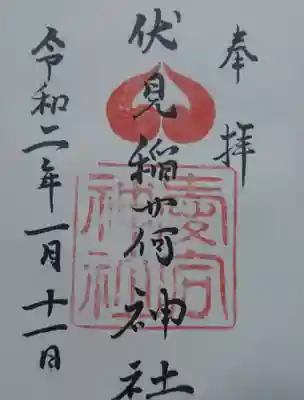 奉拝
伏見稲荷神社
令和二年一月十一日
神社